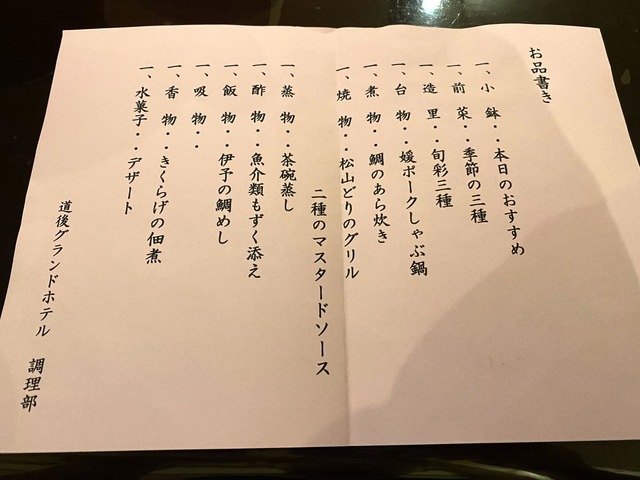 お品書き
一、小　鉢・・本日のおすすめ
一、前　菜・・季節の三種
一、造　里・・旬彩三種
一、台　物・・媛ポークしゃぶ鍋
一、煮　物・・鯛のあら炊き
一、焼　物・・松山どりのグリル
二種のマスタードソース
一、蒸　物・・茶碗蒸し
一、酢　物・・魚介類もずく添え
一、飯　物・・伊予の鯛めし
一、吸　物・・
一、香　物・・きくらげの佃煮
一、水菓子・・デザート
道後グランドホテル　調理部